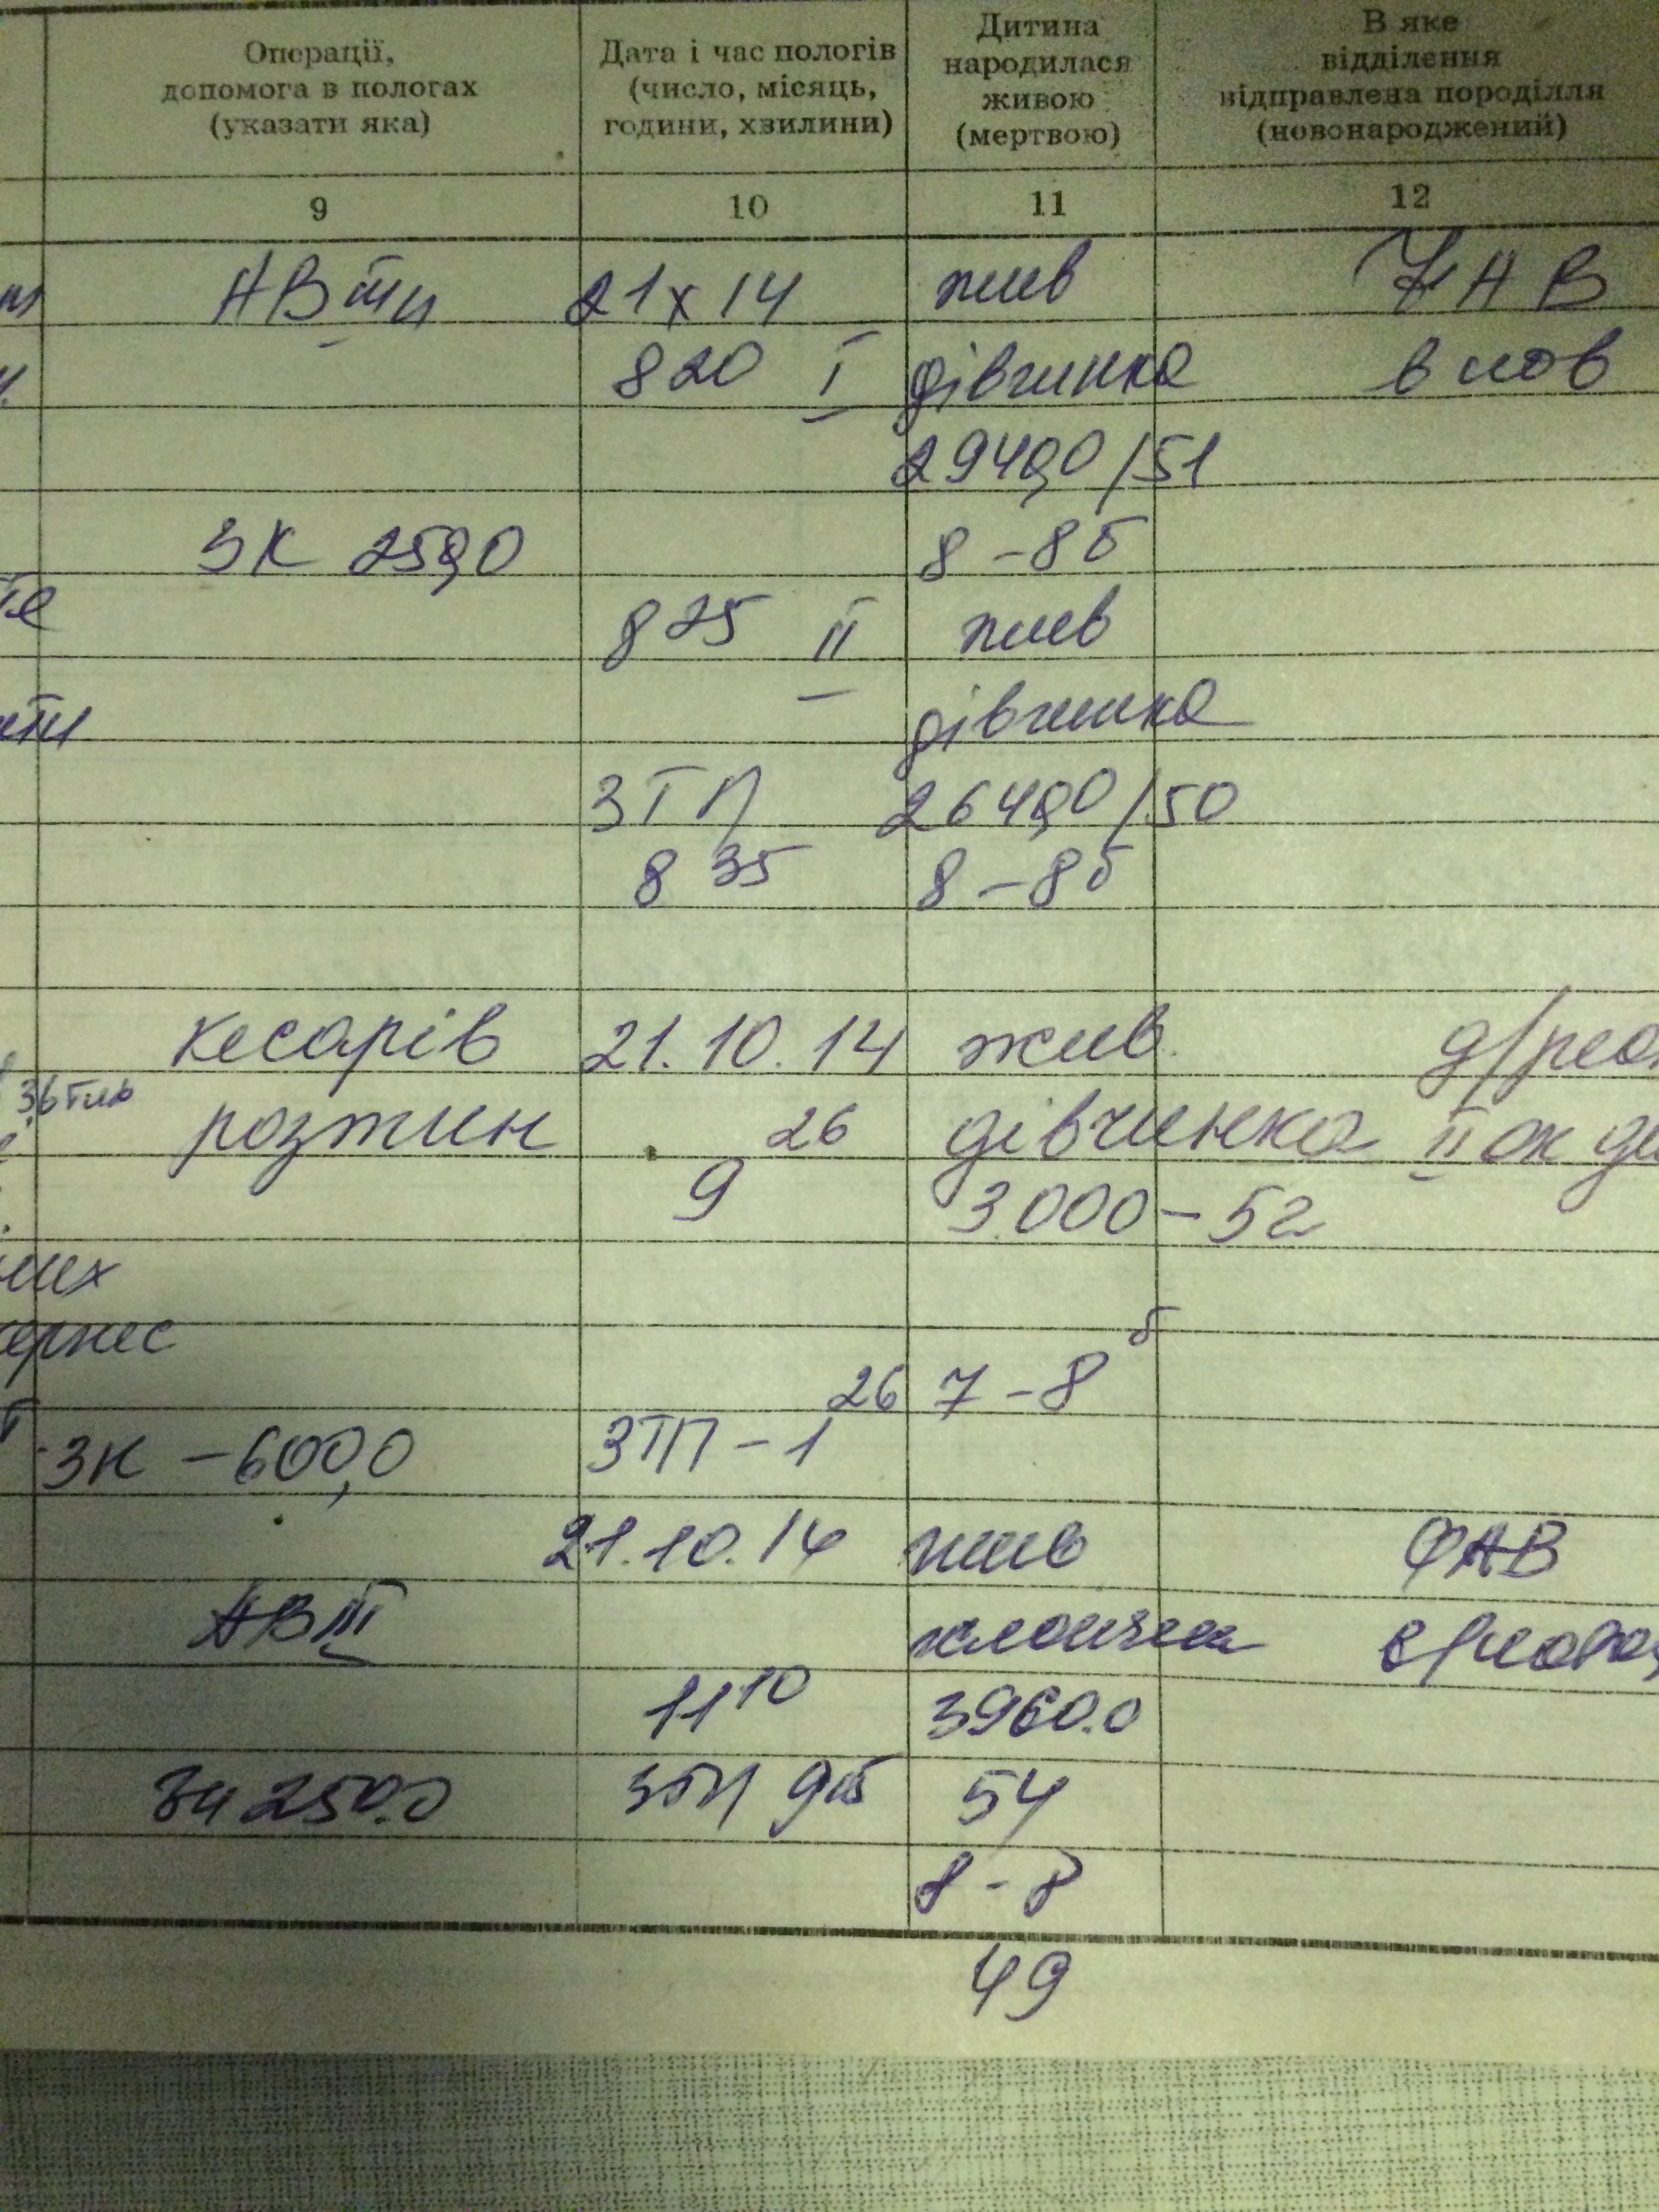 Операції,
допомога в пологах
(указати яка)
Дата і час пологів
(число, місяць,
години, хвилини)
Дитина
народилася
живою
(мертвою)
В яке
відділення
відправлена породілля
(новонароджений)
9 10 11 12
21 X 14 жив
8 20 I дівчинка
2940,0 / 51
ЗК 250,0 8 – 8 б
8 25 II жив
дівчинка
ЗТП 2640,0 / 50
8 35 8 – 8 б
кесарів 21.10.14 жив
36 тиж розтин 9 26 дівчинка II
3.000 – 52
7 – 8 б
ЗК – 600,0 ЗТП – 1 26
21.10.14 жив ФАВ
АВ III хлопчик
11 10 3960.0
250.0 ЗТП 54
8 – 8
49